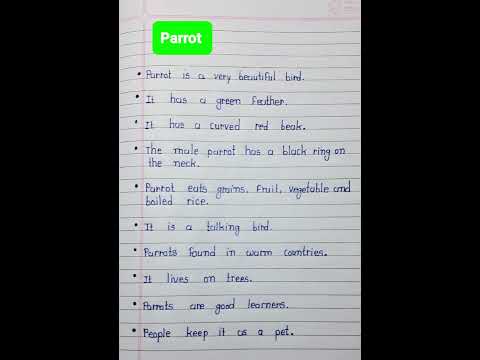 Parrot
• Parrot is a very beautiful bird.
• It has a green feather.
• It has a curved red beak.
• The male parrot has a black ring on
the neck.
• Parrot eats grains, fruit, vegetable and
boiled rice.
• It is a talking bird.
• Parrots found in warm countries.
• It lives on trees.
• Parrots are good learners.
• People keep it as a pet.